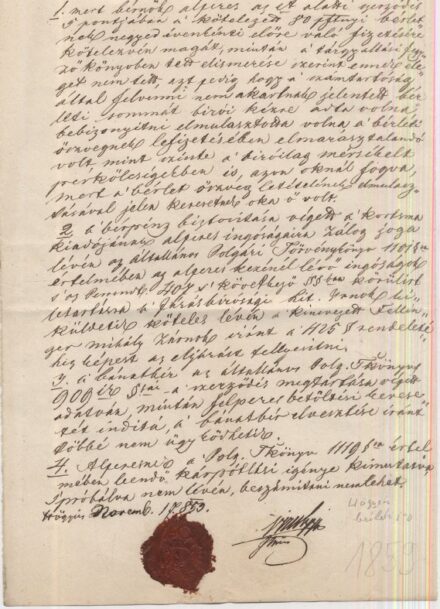 1. mert bérnök alperes az itt alatti szerződés
5 pontjában a kötelezett 80 pftnyi bérlet
nek negyed évenkinti előre való fizetésére
kötelezvén magát, miután a tárgyallási jegy
zőkönyvben tett elismerése szerint ennek ele
get nem tett, azt pedig hogy a számtartóság
által felvenni nem akartnak jelentett bér
leti sommát birói kézre adta volna
bebizonyitni elmulasztotta volna a bérlet
összvegnek lefizetésében elmarasztalandó
volt mint szinte a biróilag mérsékelt
perköltségekben is, azon oknál fogva,
mert a bérlet összveg letételinek elmulasz
tásával jelen keresetnek oka ő volt.
2. a bérpénz biztositása végett a kortsma
kiadójának alperes ingóságaira zálog joga
lévén az általános Polgári Törvénykönyv 1101 §a
értelmében az alperes kezénél lévő ingóságok
s az Perrendt. 404 s következő §§ban körülirt
letartásra a Járásbirósági hit. Irnok ki
küldetik köteles lévén a kinevezett
ger Mihály zárnok iránt a 425 § rendelete
hez képest az eljárást tellyesitni.
3. a bánatbér az általános Polg. Tkönyv
909ik §sai a szerződés megtartása végett
adatván, miután felperes bérleti keresе
tét inditá, a bánatbér elvesztése iránt
többé nem ügyködhetik.
4. Alperesnek a Polg. Tkönyv 1119 §sa értel
mében leendő kárpótlási igénye kimutatva
s próbálva nem lévén, beszámitani nem lehet.
Högyész Novemb. 17. 859.
Högyész
bérlet
1859